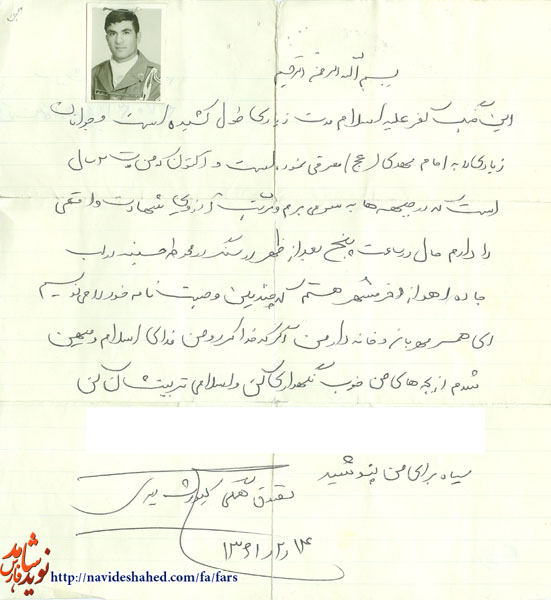 بسم الله الرحمن الرحیم
این جنگ کفر علیه اسلام مدت زیادی طول کشیده است و جوانان
زیادی را به امام مهدی (عج) معرفی نموده است و اکنون که من مدت ۲ سال
است که در جبهه ها به سر می برم و آرزوی شهادت واقعی
را دارم حال در ساعت پنج بعد از ظهر در سنگر در محوطه حسینیه در
جاده اهواز خرمشهر هستم که چندمین وصیت نامه خود را می نویسم
ای همسر مهربان و خانه دار من اگر که خدا کرد و من فدای اسلام و میهن
شدم از بچه های من خوب نگهداری کن و اسلامی تربیتشان کن
سیاه برای من نپوشید
۱۳۶۱ر۲ر۱۴
نوید شاهد
فارس
http://navideshahed.com/fa/fars